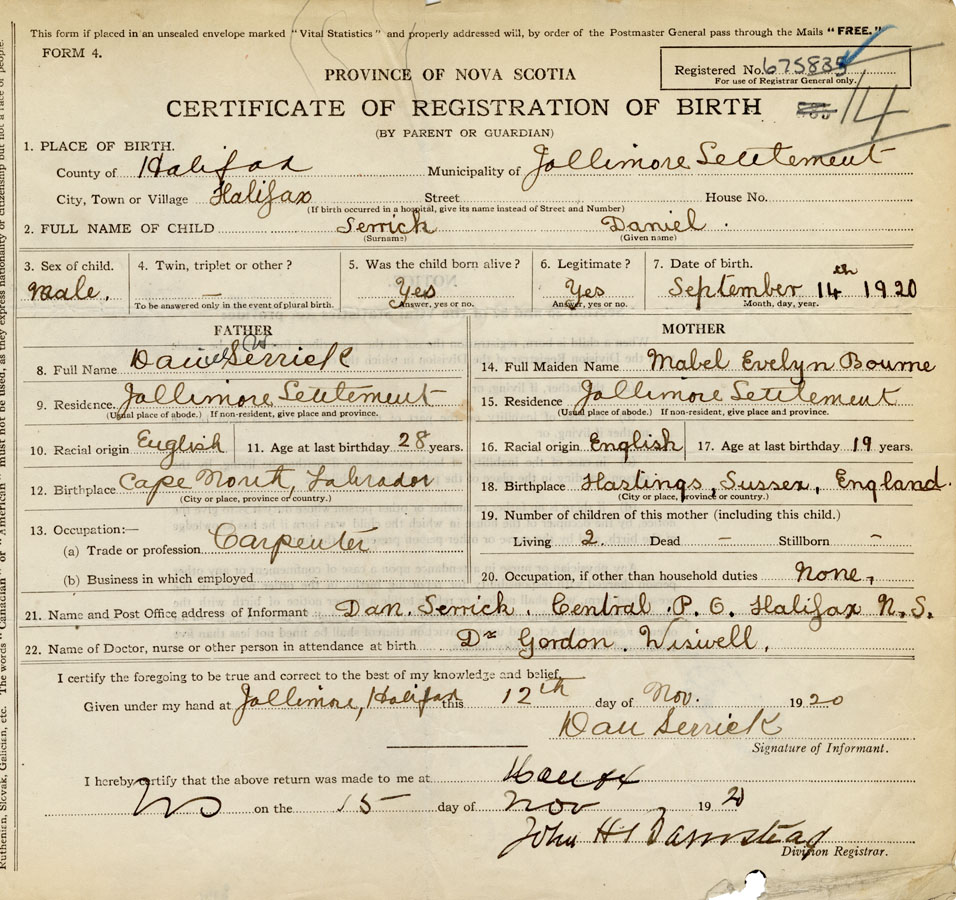 This form if placed in an unsealed envelope marked "Vital Statistics" and properly addressed will, by order of the Postmaster General pass through the Mails "FREE."
FORM 4.
Registered No. 675835
For use of Registrar General only.
PROVINCE OF NOVA SCOTIA
CERTIFICATE OF REGISTRATION OF BIRTH 14
(BY PARENT OR GUARDIAN)
1. PLACE OF BIRTH.
County of Halifax Municipality of Jollimore Settlement
City, Town or Village Halifax Street House No.
(If birth occurred in a hospital, give its name instead of Street and Number)
2. FULL NAME OF CHILD Serrick Daniel
(Surname) (Given name)
3. Sex of child. 4. Twin, triplet or other? 5. Was the child born alive? 6. Legitimate? 7. Date of birth.
male. — Yes Yes September 14th 1920
To be answered only in the event of plural birth. Answer, yes or no. Answer, yes or no. Month, day, year.
FATHER MOTHER
8. Full Name Daniel W. Serrick 14. Full Maiden Name Mabel Evelyn Bourne
9. Residence. Jollimore Settlement 15. Residence Jollimore Settlement
(Usual place of abode.) If non-resident, give place and province. (Usual place of abode.) If non-resident, give place and province.
10. Racial origin English 11. Age at last birthday 28 years. 16. Racial origin English 17. Age at last birthday 19 years.
12. Birthplace Cape North, Labrador 18. Birthplace Hastings, Sussex, England.
(City or place, province or country.) (City or place, province or country.)
13. Occupation:— 19. Number of children of this mother (including this child.)
(a) Trade or profession Carpenter Living 2. Dead – Stillborn –
(b) Business in which employed 20. Occupation, if other than household duties None,
21. Name and Post Office address of Informant Dan. Serrick. Central P. O. Halifax N.S.
22. Name of Doctor, nurse or other person in attendance at birth Dr Gordon. Wiswell,
I certify the foregoing to be true and correct to the best of my knowledge and belief.
Given under my hand at Jollimore, Halifax this 12th day of Nov. 1920
Dan Serrick
Signature of Informant.
I hereby certify that the above return was made to me at Halifax
NS on the 15 day of Nov 1920
John H Barnstead
Division Registrar.